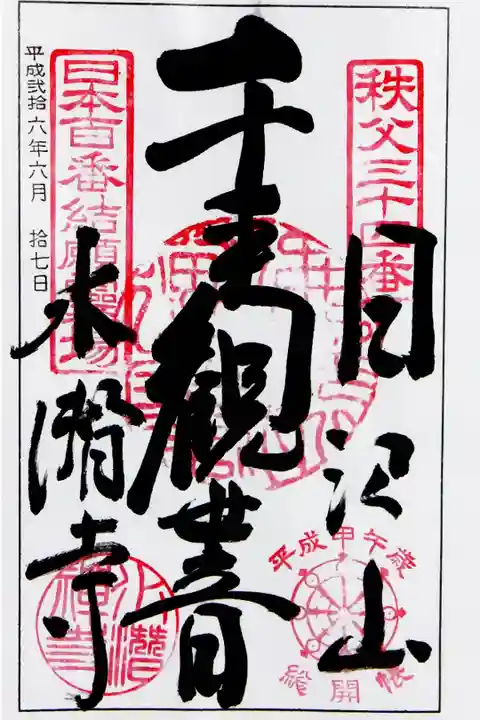 秩父三十四番
日沢山
平成甲午歳
總開帳
千手觀世音
日本百番結願靈場
水濳寺
平成弐拾六年六月 拾七日